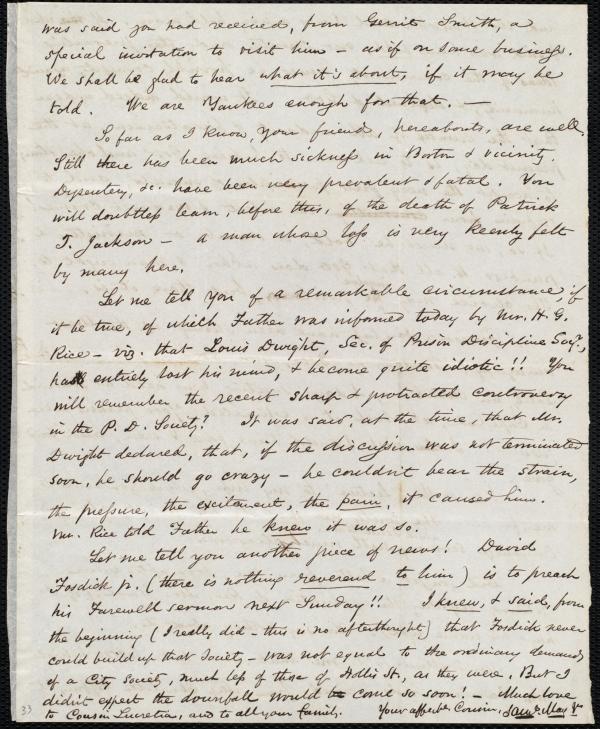 was said you had received, from Gerrit Smith, a
special invitation to visit him - as if on some business.
We shall be glad to hear what it's about, if it may be
told. We are Yankees enough for that. —
So far as I know, your friend, hereabouts, are well.
Still there has been much sickness in Boston & vicinity.
Dysentery, &c. have been very prevalent & fatal. You
will doubtless learn, before this, of the death of Patrick
T. Jackson - a man whose loss is very keenly felt
by many here.
Let me tell you of a remarkable circumstance, if
it be true, of which Father was informed today by Mr. H. G.
Rice - viz. that Louis Dwight, Sec. of Prison Discipline Socy.,
has entirely lost his mind, & become quite idiotic!! You
will remember the recent sharp & protracted controversy
in the P. D. Society? It was said, at the time, that Mr.
Dwight declared, that, if the discussion was not terminated
soon, he should go crazy - he couldn't bear the strain,
the pressure, the excitement, the pain, it caused him.
Mr. Rice told Father he knew it was so.
Let me tell you another piece of news! David
Fosdick jr. (there is nothing reverend to him) is to preach
his Farewell sermon next Sunday!! I knew, & said, from
the beginning (I really did - this is no afterthought) that Fosdick never
could build up that Society - was not equal to the ordinary demands
of a City Society, much less of those of Hollis St, as they were. But I
didn't expect the downfall would come so soon! - Much love
to Cousin Lucretia, and to all your family. Your affecte. Cousin, Saml. May Jr
33